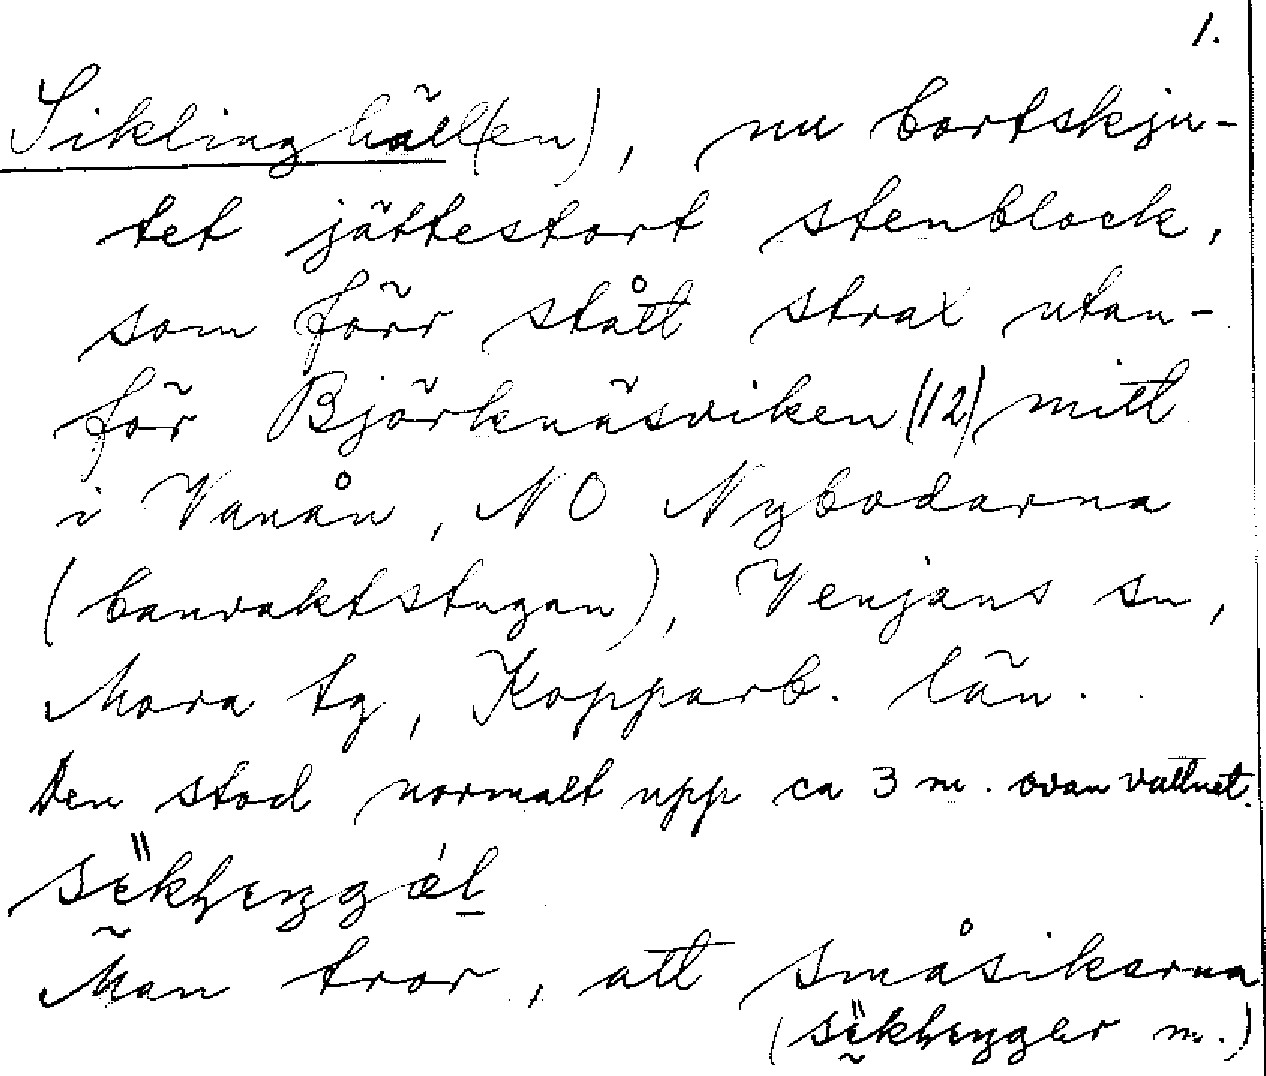 1.
Siklinghäll(en), nu bortskju-
tet jättestort stenblock,
som förr stått strax utan-
för Björknäsviken (12) mitt
i Vanån, NO Nybodarna
(banvaktstugan), Venjans sn,
Mora tg, Kopparb. län.
Den stod normalt upp ca 3 m. ovan vattnet.
Man tror, att småsikarna
m.)